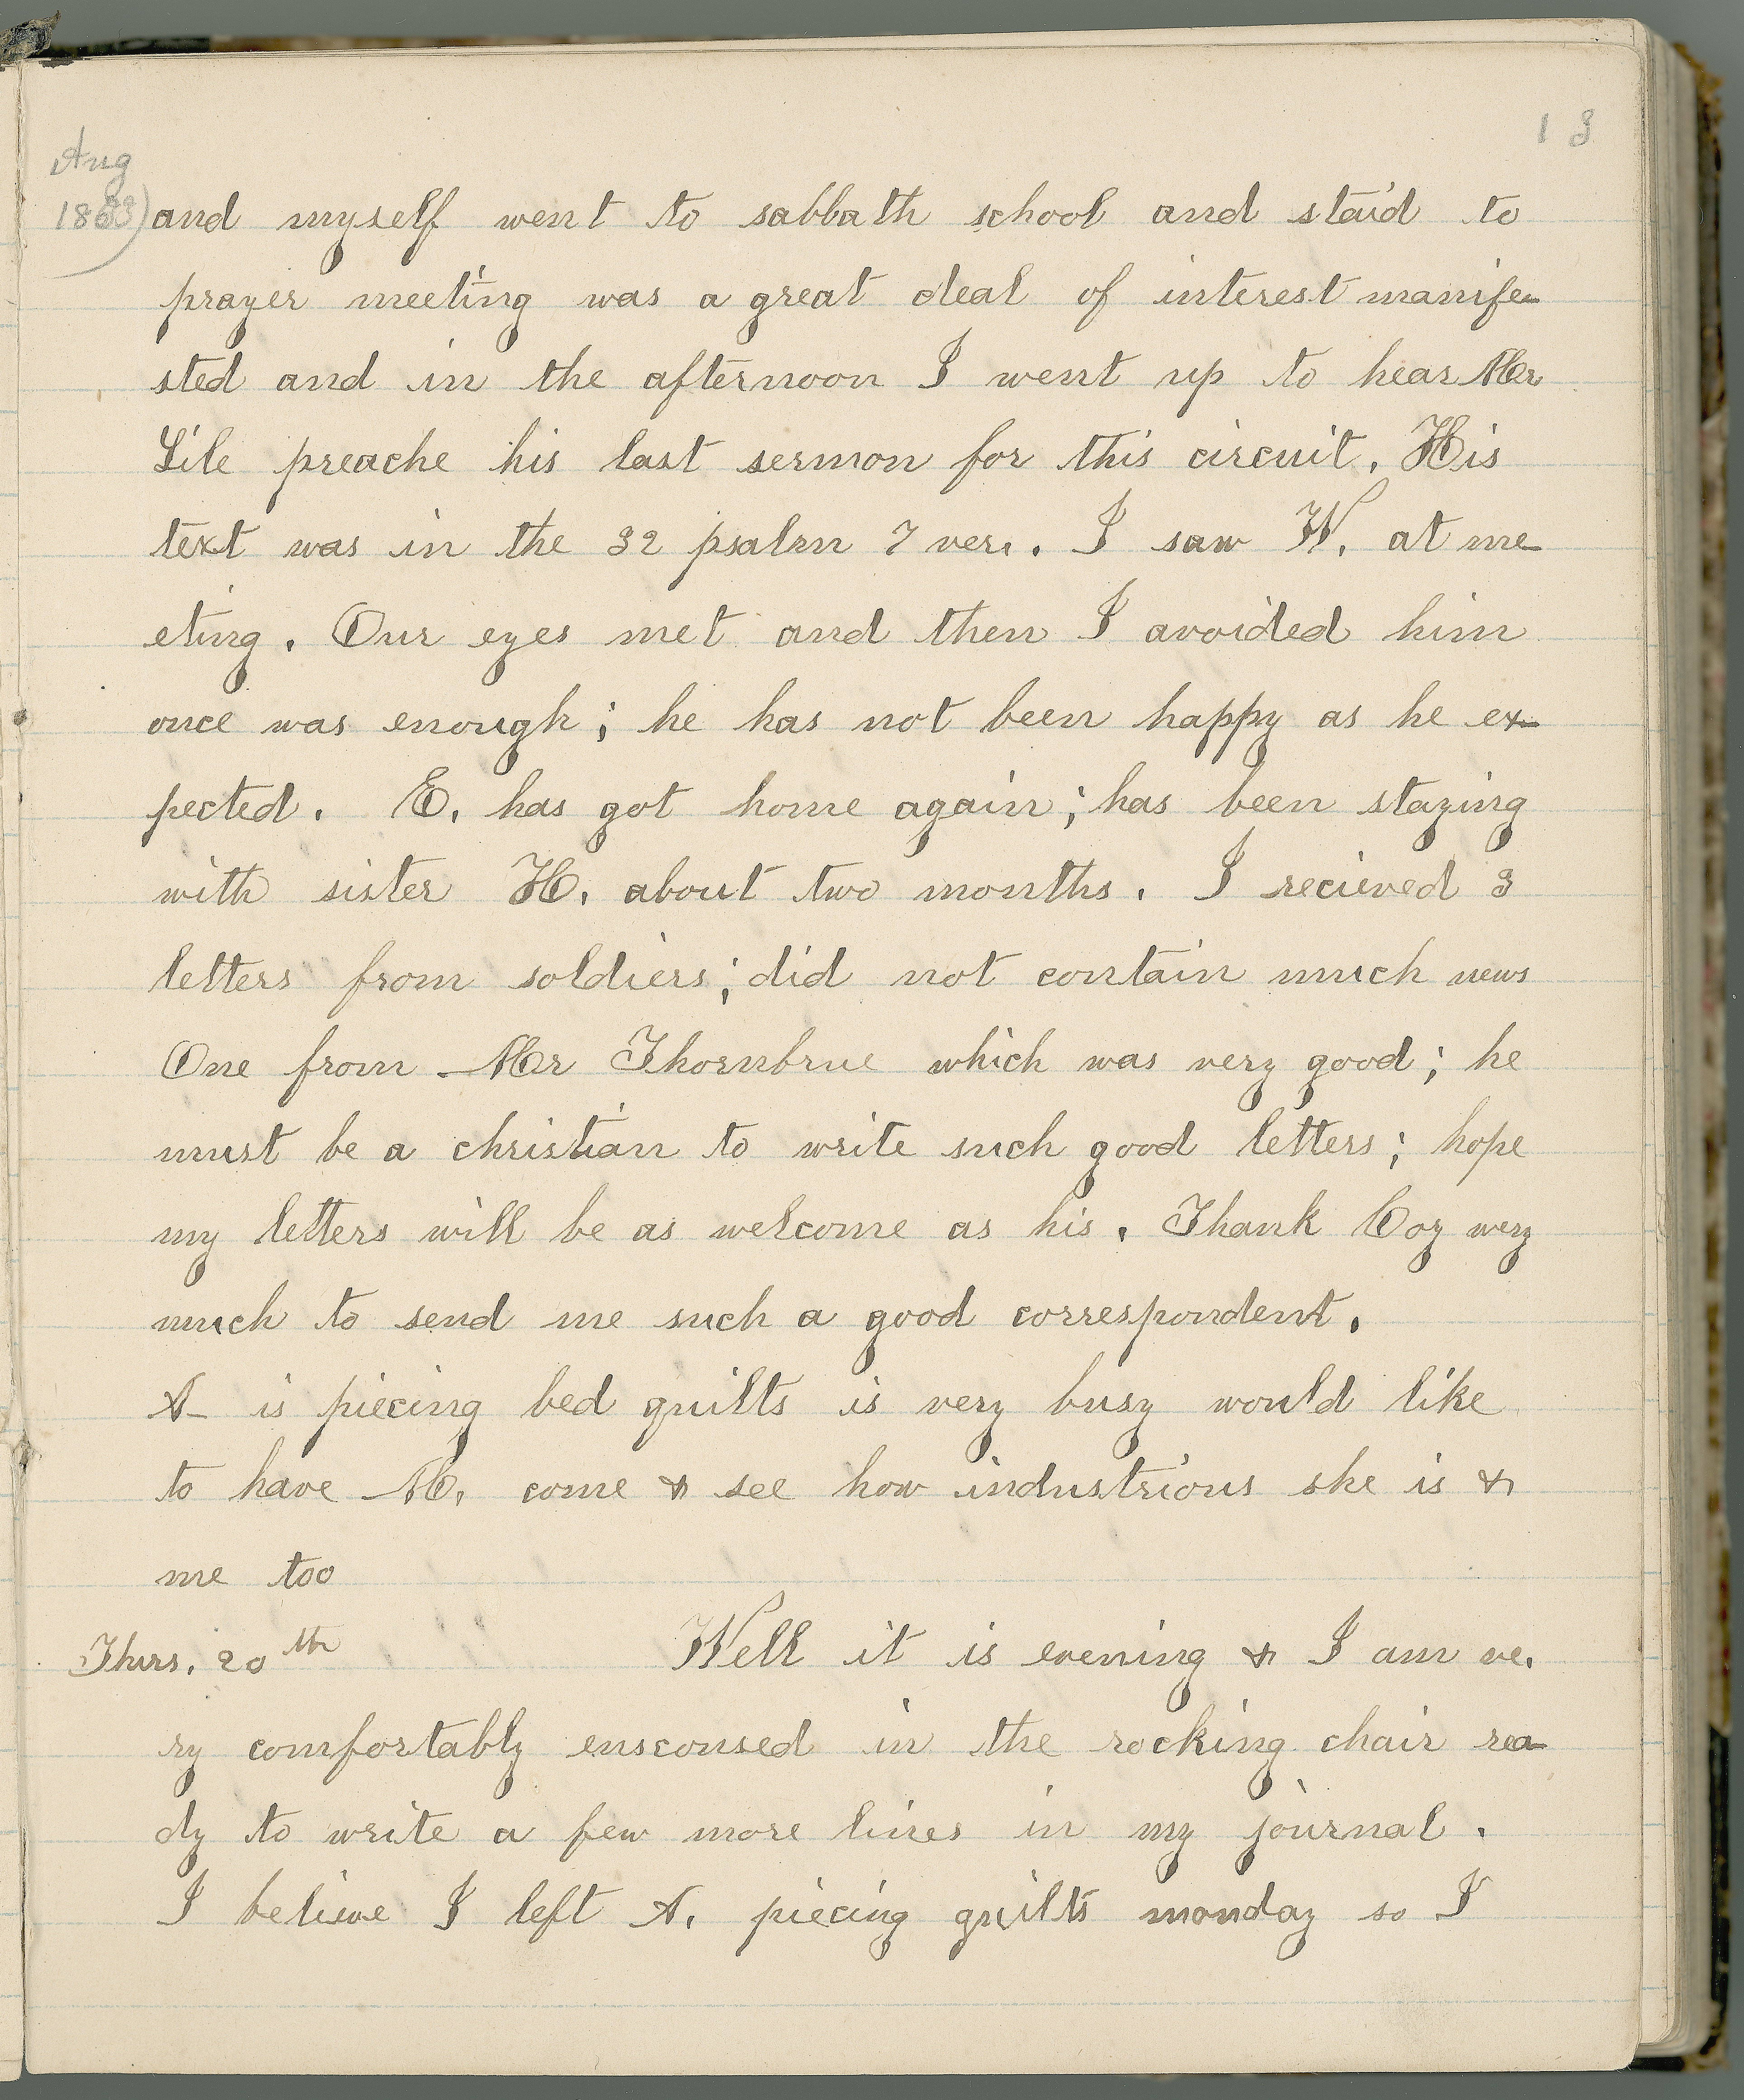 13
Aug
1863)
and myself went to sabbath school and staid to
prayer meeting was a great deal of interest manife-
sted and in the afternoon I went up to hear Mr
Lile preache his last sermon for this circuit. His
text was in the 32 psalm 7 ver.. I saw W. at me-
eting. Our eyes met and then I avoided him
once was enough; he has not been happy as he ex-
pected. E. has got home again; has been staying
with sister H. about two months. I recieved 3
letters from soldiers; did not contain much news
One from Mr Thornbrue which was very good; he
must be a christian to write such good letters; hope
my letters will be as welcome as his. Thank Coz very
much to send me such a good correspondent.
A- is piecing bed quilts is very busy would like
to have M. come & see how industrious she is &
me too
Thurs. 20th Well it is evening & I am ve.
ry comfortably ensconsed in the rocking chair rea-
dy to write a few more lines in my journal.
I believe I left A. piecing quilts monday so I